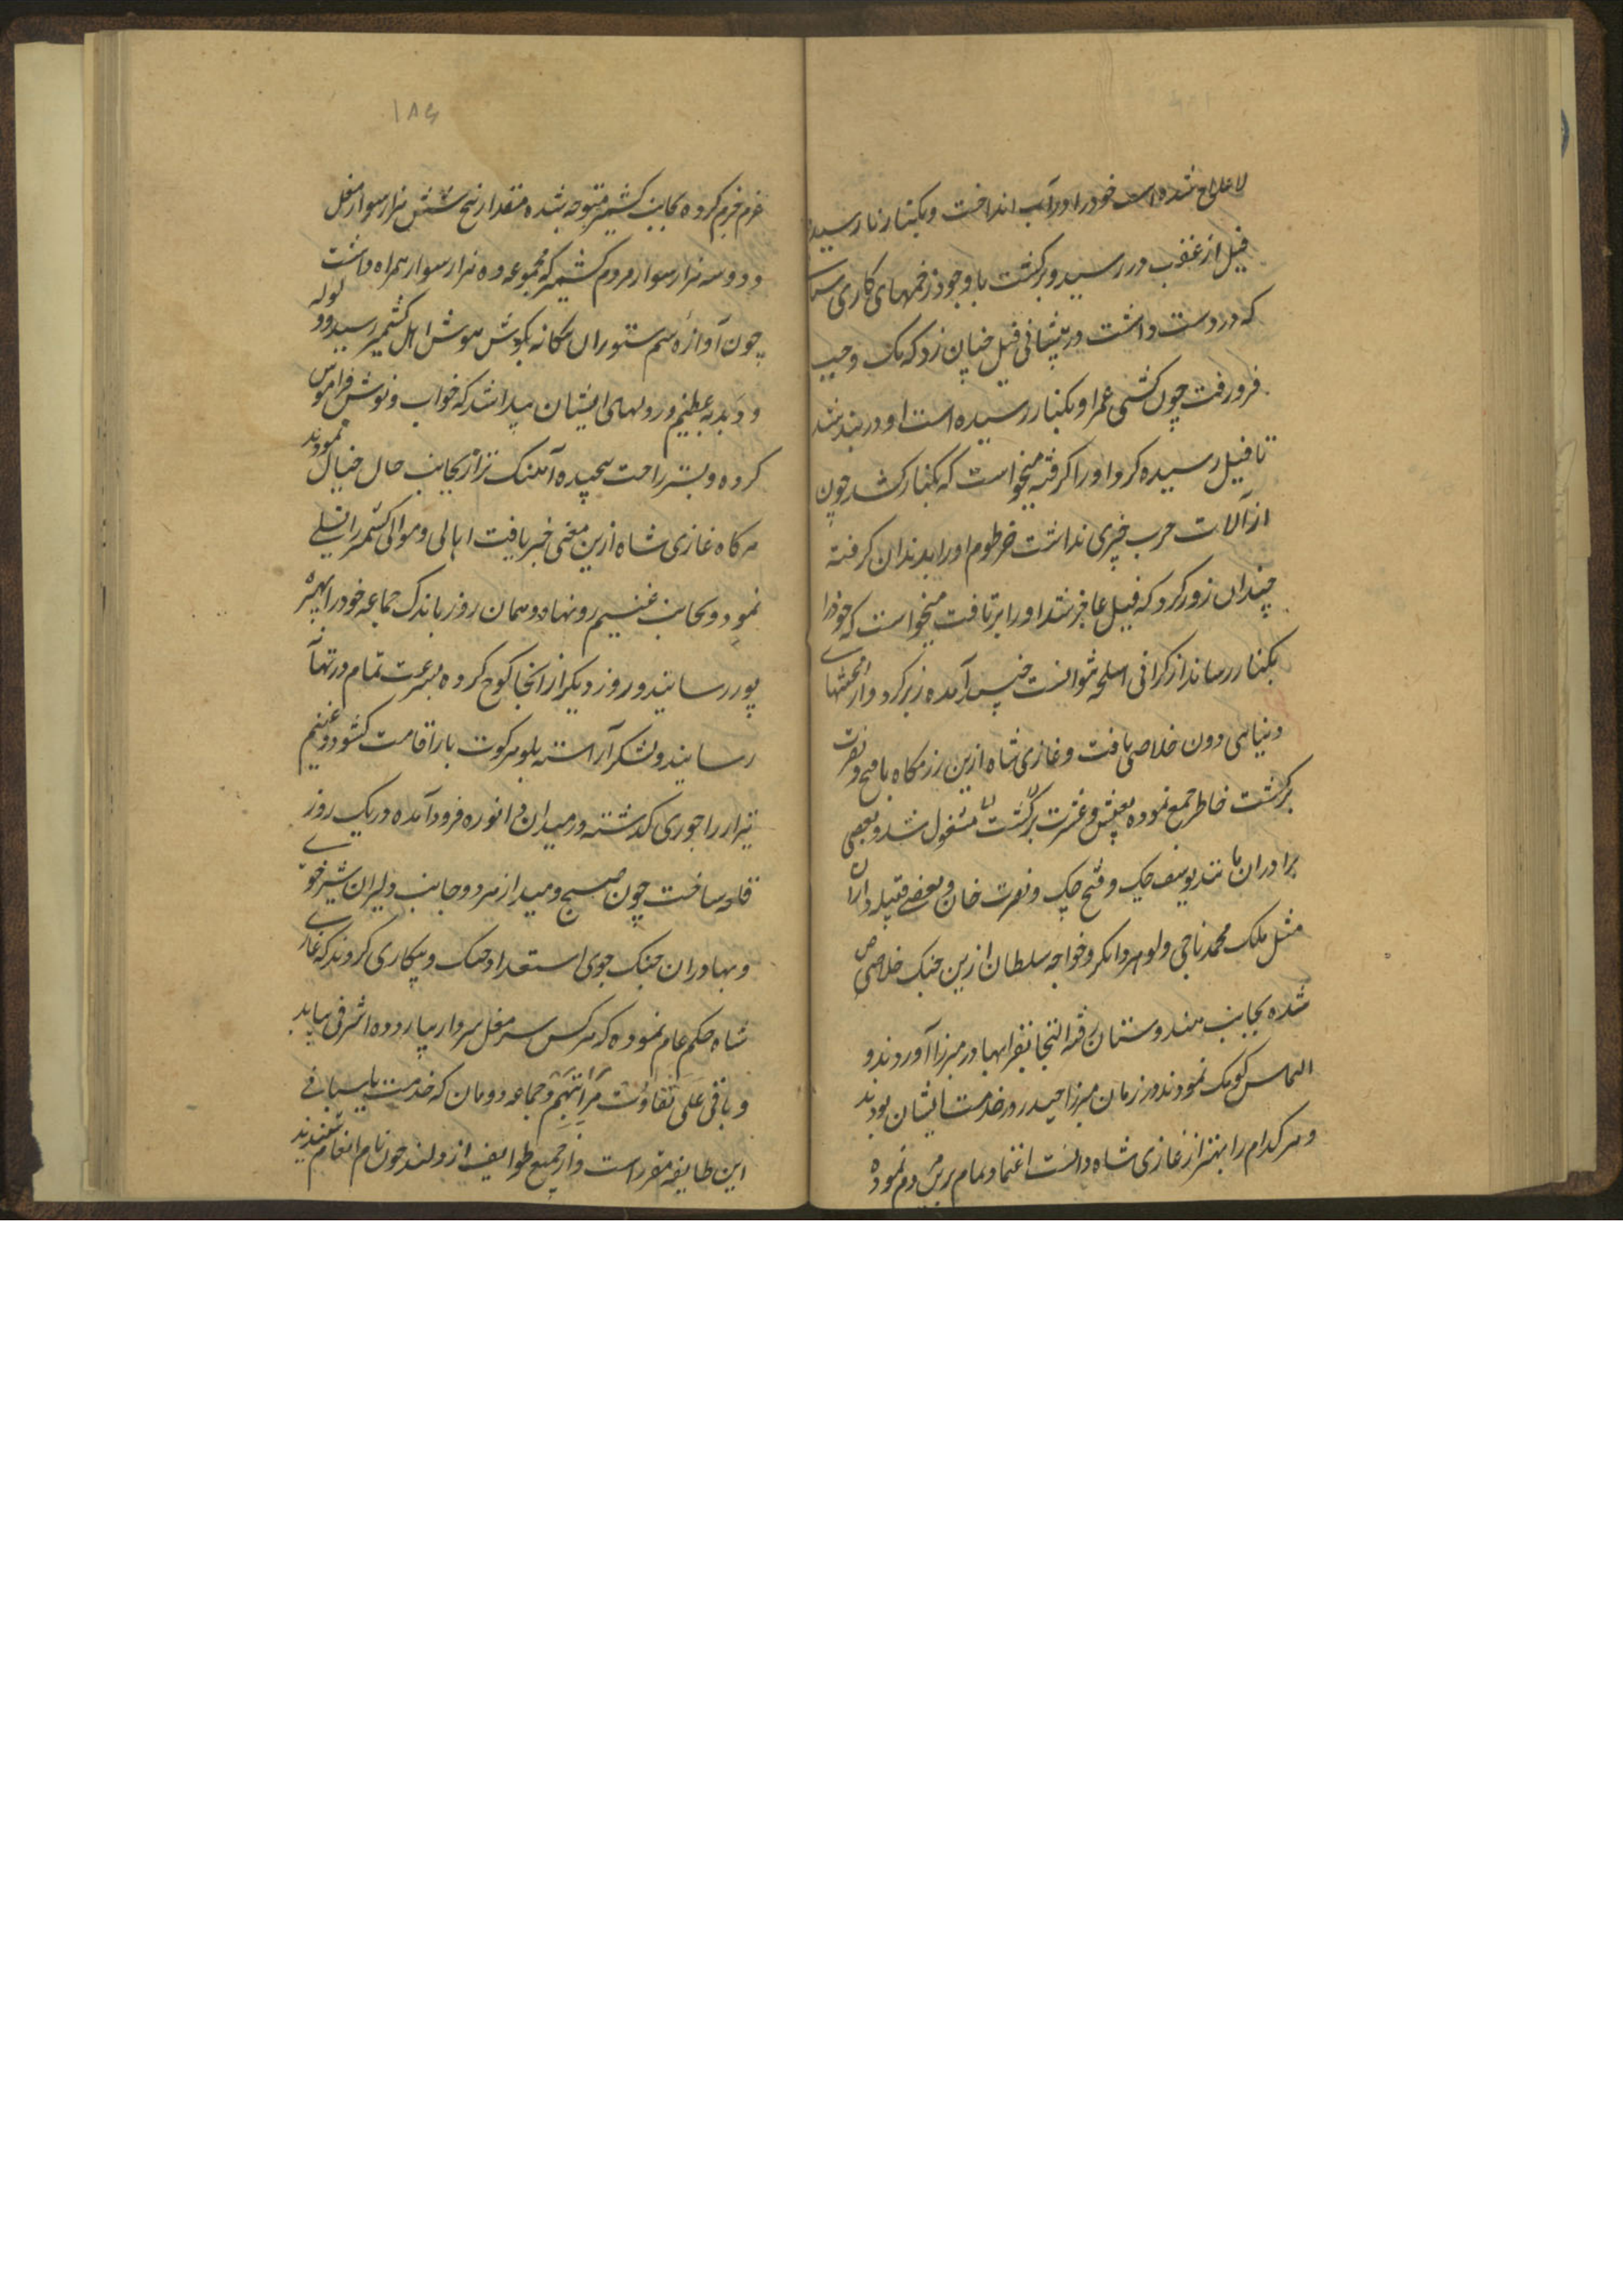 لاعلاج شده است خود را در آب انداخت و بکنار نارسیده
فیل از عقب در رسید و برکشت با وجود زخمهای کاری
که در دست داشت در پیشانی فیل چنان زد که یک وجب
فرو رفت چون کشتی عمر او بکنار رسیده است او در بند
تا فیل رسیده کرد او را کرفته میخواست که بکنار کشد چون
از آلات حرب چیزی نداشت خرطوم او را بدندان کرفته
چندان زور کرد که فیل عاجز شد او را بر تافت میخواست که خود را
بکنار رساند از کرانی اسلحه نتوانست پس آمده زیر کرد و از
دنیای دون خلاصی یافت و غازی شاه ازین رزمکاه با فتح و نصرت
برکشت خاطر جمع نموده بعیش و عشرت مشغول شد و بعضی
برادران مانند یوسف چک و فتح چک و نصرت خان و بعضی قبیله داران
مثل ملک محمد ناجی و لوهر دانکر و خواجه سلطان ازین جنک خلاص
شده بجانب هندوستان رفته التجا بقرا بهادر میرزا آوردند و
التماس کومک نمودند در زمان میرزا حیدر در خدمت ایشان بودند
و هر کدام را بهتر از غازی شاه دانست اعتماد تمام برین مردم نموده
۱۸۶
عزم جزم کرده بجانب کشمیر متوجه شده مقدار پنج شش هزار سوار مغل
و دو سه هزار سوار مردم کشمیر که مجموعه ده هزار سوار همراه داشت
چون آوازه سم ستوران بکوش هوش اهل کشمیر رسید ولوله
و دبدبه عظیم در دلهای ایشان پیدا شد که خواب و نوش فراموش
کرده و بستر راحت پیچیده آهنک بجانب حال خیال نمودند
هرکاه غازی شاه ازین معنی خبر یافت اهالی و موالی کشمیر را تسلی
نمود و بجانب غنیم رو نهاد و همان روز باندک جماعه خود را بهیره
پور رسانید و روز دیکر از آنجا کوچ کرده بسرعت تمام در تهانه
رسانید و لشکر آراسته بلوهرکوت بار اقامت کشود و غنیم
نیز از راجوری کذشته در میدان فرود آمده در یک روز
قلعه ساخت چون صبح دمید از هر دو جانب دلیران شیر خوی
و بهادران جنک جوی استعداد جنک و پیکاری کردند که غازی
شاه حکم عام نموده که هر کس سر مغل سردار بیارد ده اشرفی بیابد
و باقی عَلی تَفاوُت مَراتبهِم و جماعه دومان که خدمت پاسبانی
این طایفه مقرر است و از جمیع طوایف چون نام انعام شنیدند